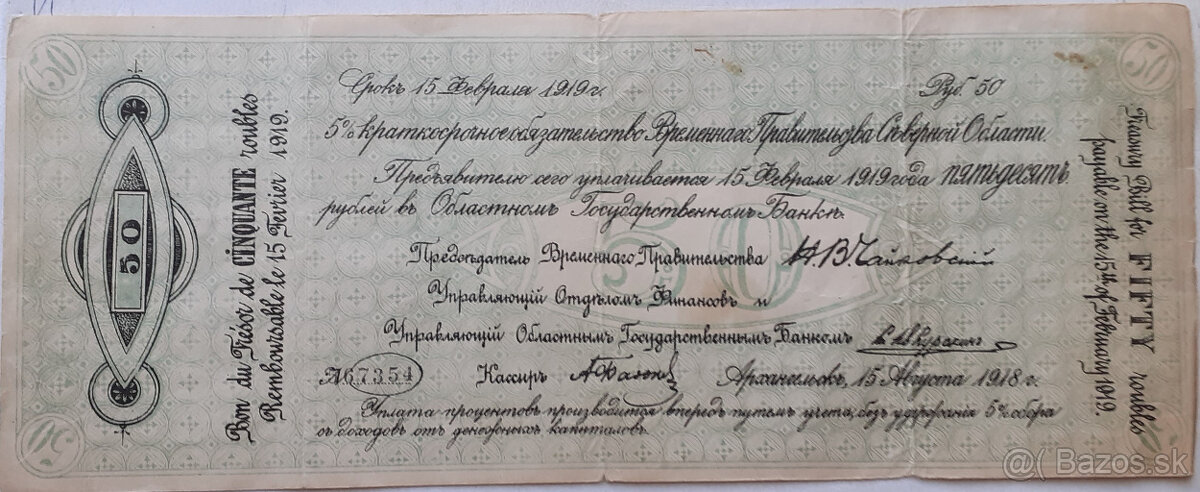 50
50
Срокъ 15 Февраля 1919 г.
Руб. 50
5% краткосрочное обязательство Временнаго Правительства Сѣверной Области.
Предъявителю сего уплачивается 15 Февраля 1919 года пятьдесятъ
рублей въ Областномъ Государственномъ Банкѣ.
50
Предсѣдатель Временнаго Правительства Н.В.Чайковскій
Управляющій Отдѣломъ Финансовъ и
Управляющій Областнымъ Государственнымъ Банкомъ
А 67354
Кассиръ
Архангельскъ, 15 Августа 1918 г.
Уплата процентовъ производится впередъ путемъ учета, безъ удержанія 5% сбора
съ доходовъ отъ денежныхъ капиталовъ.
50
Bon du Trésor de CINQUANTE roubles
Remboursable le 15 Fevrier 1919.
Treasury Bill for FIFTY roubles
payable on the 15th of February 1919.
50
@( Bazos.sk